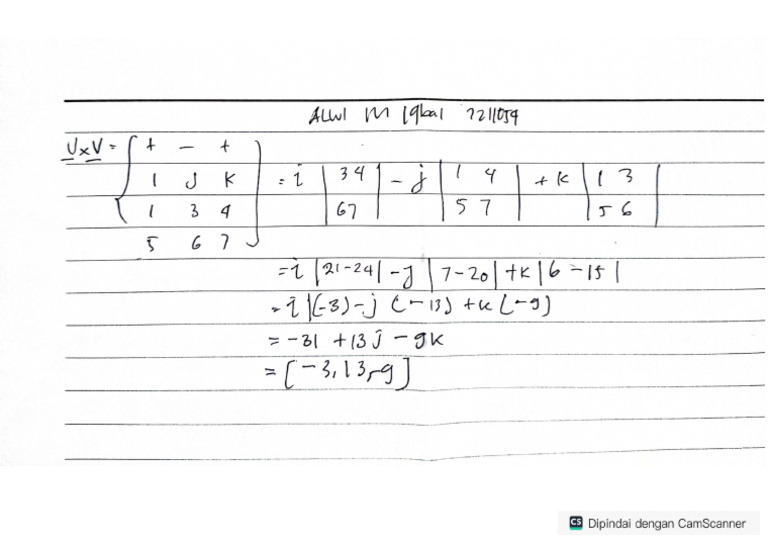 Alwi M Iqbal 2211054
U x V = + - +
i j k = i | 3 4 | - j | 1 4 | + k | 1 3 |
1 3 4 | 6 7 | | 5 7 | | 5 6 |
5 6 7
= i | 21-24 | - j | 7-20 | + k | 6 - 15 |
= i |(-3) - j (-13) + k (-9)
= -3i + 13j - 9k
= [-3, 13, -9]
CS Dipindai dengan CamScanner